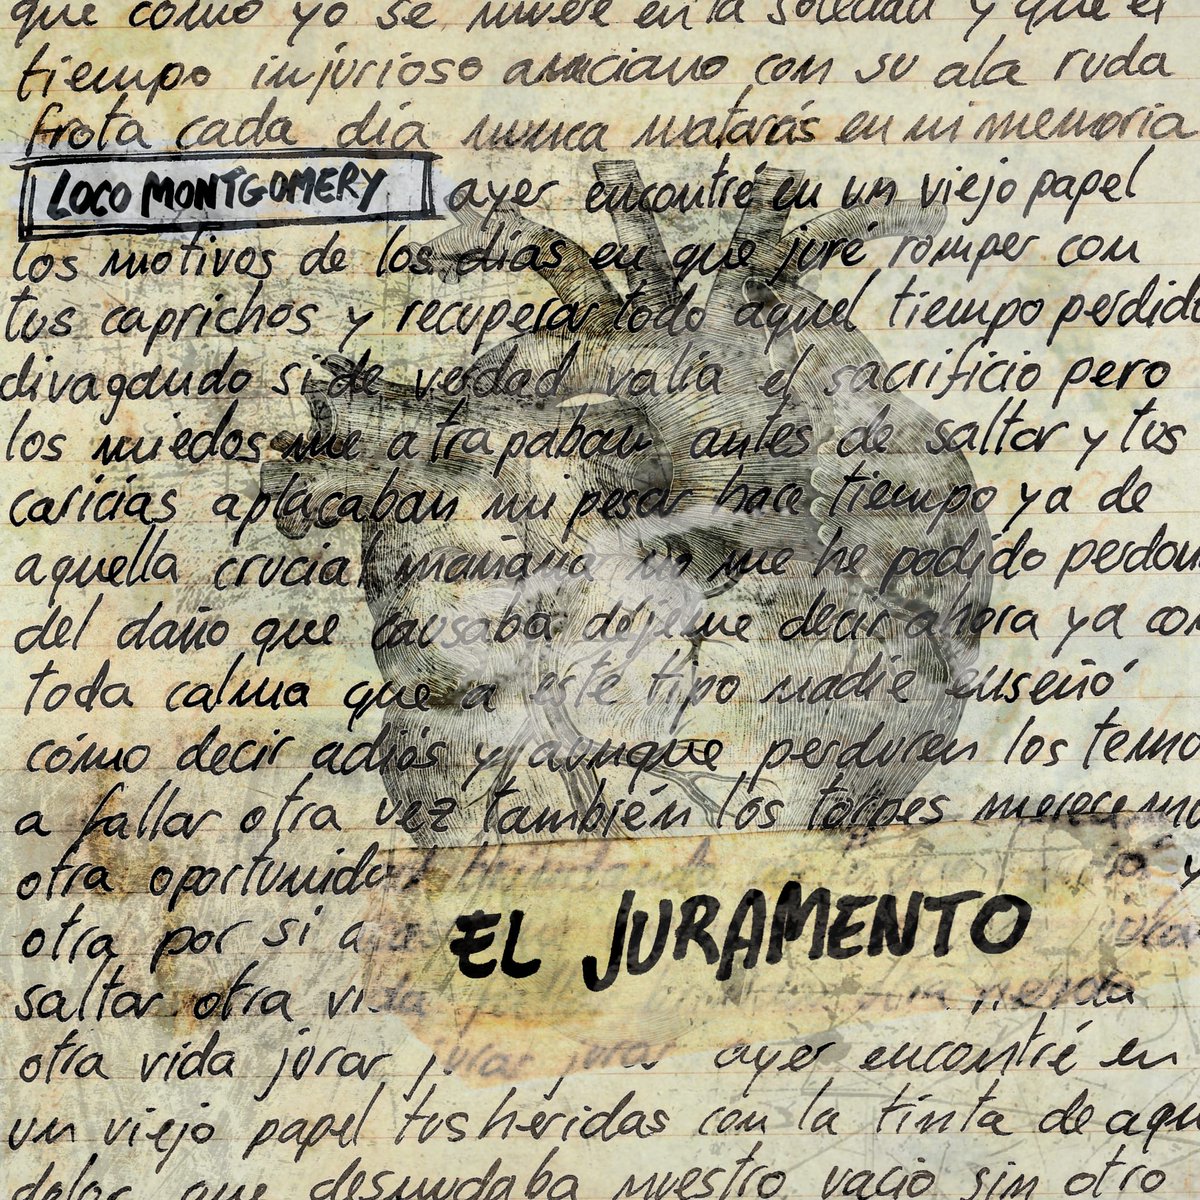 que como yo se muere en la soledad y que el
tiempo injurioso anciano con su ala ruda
frota cada día nunca matarás en mi memoria
LOCO MONTGOMERY ayer encontré en un viejo papel
los motivos de los días en que juré romper con
tus caprichos y recuperar todo aquel tiempo perdido
divagando si de verdad valía el sacrificio pero
los miedos me atrapaban antes de saltar y tus
caricias aplacaban mi pesar hace tiempo ya de
aquella crucial mañana no me he podido perdon
del daño que causaba déjeme decir ahora ya con
toda calma que a este tipo nadie enseñó
cómo decir adiós y aunque perduren los temo
a fallar otra vez también los torpes merecemo
otra oportunidad y
otra por si a
EL JURAMENTO
saltar otra vida
otra vida jurar jurar jurar ayer encontré en
un viejo papel tus heridas con la tinta de aqu
dolor que desnudaba nuestro vacío sin otro